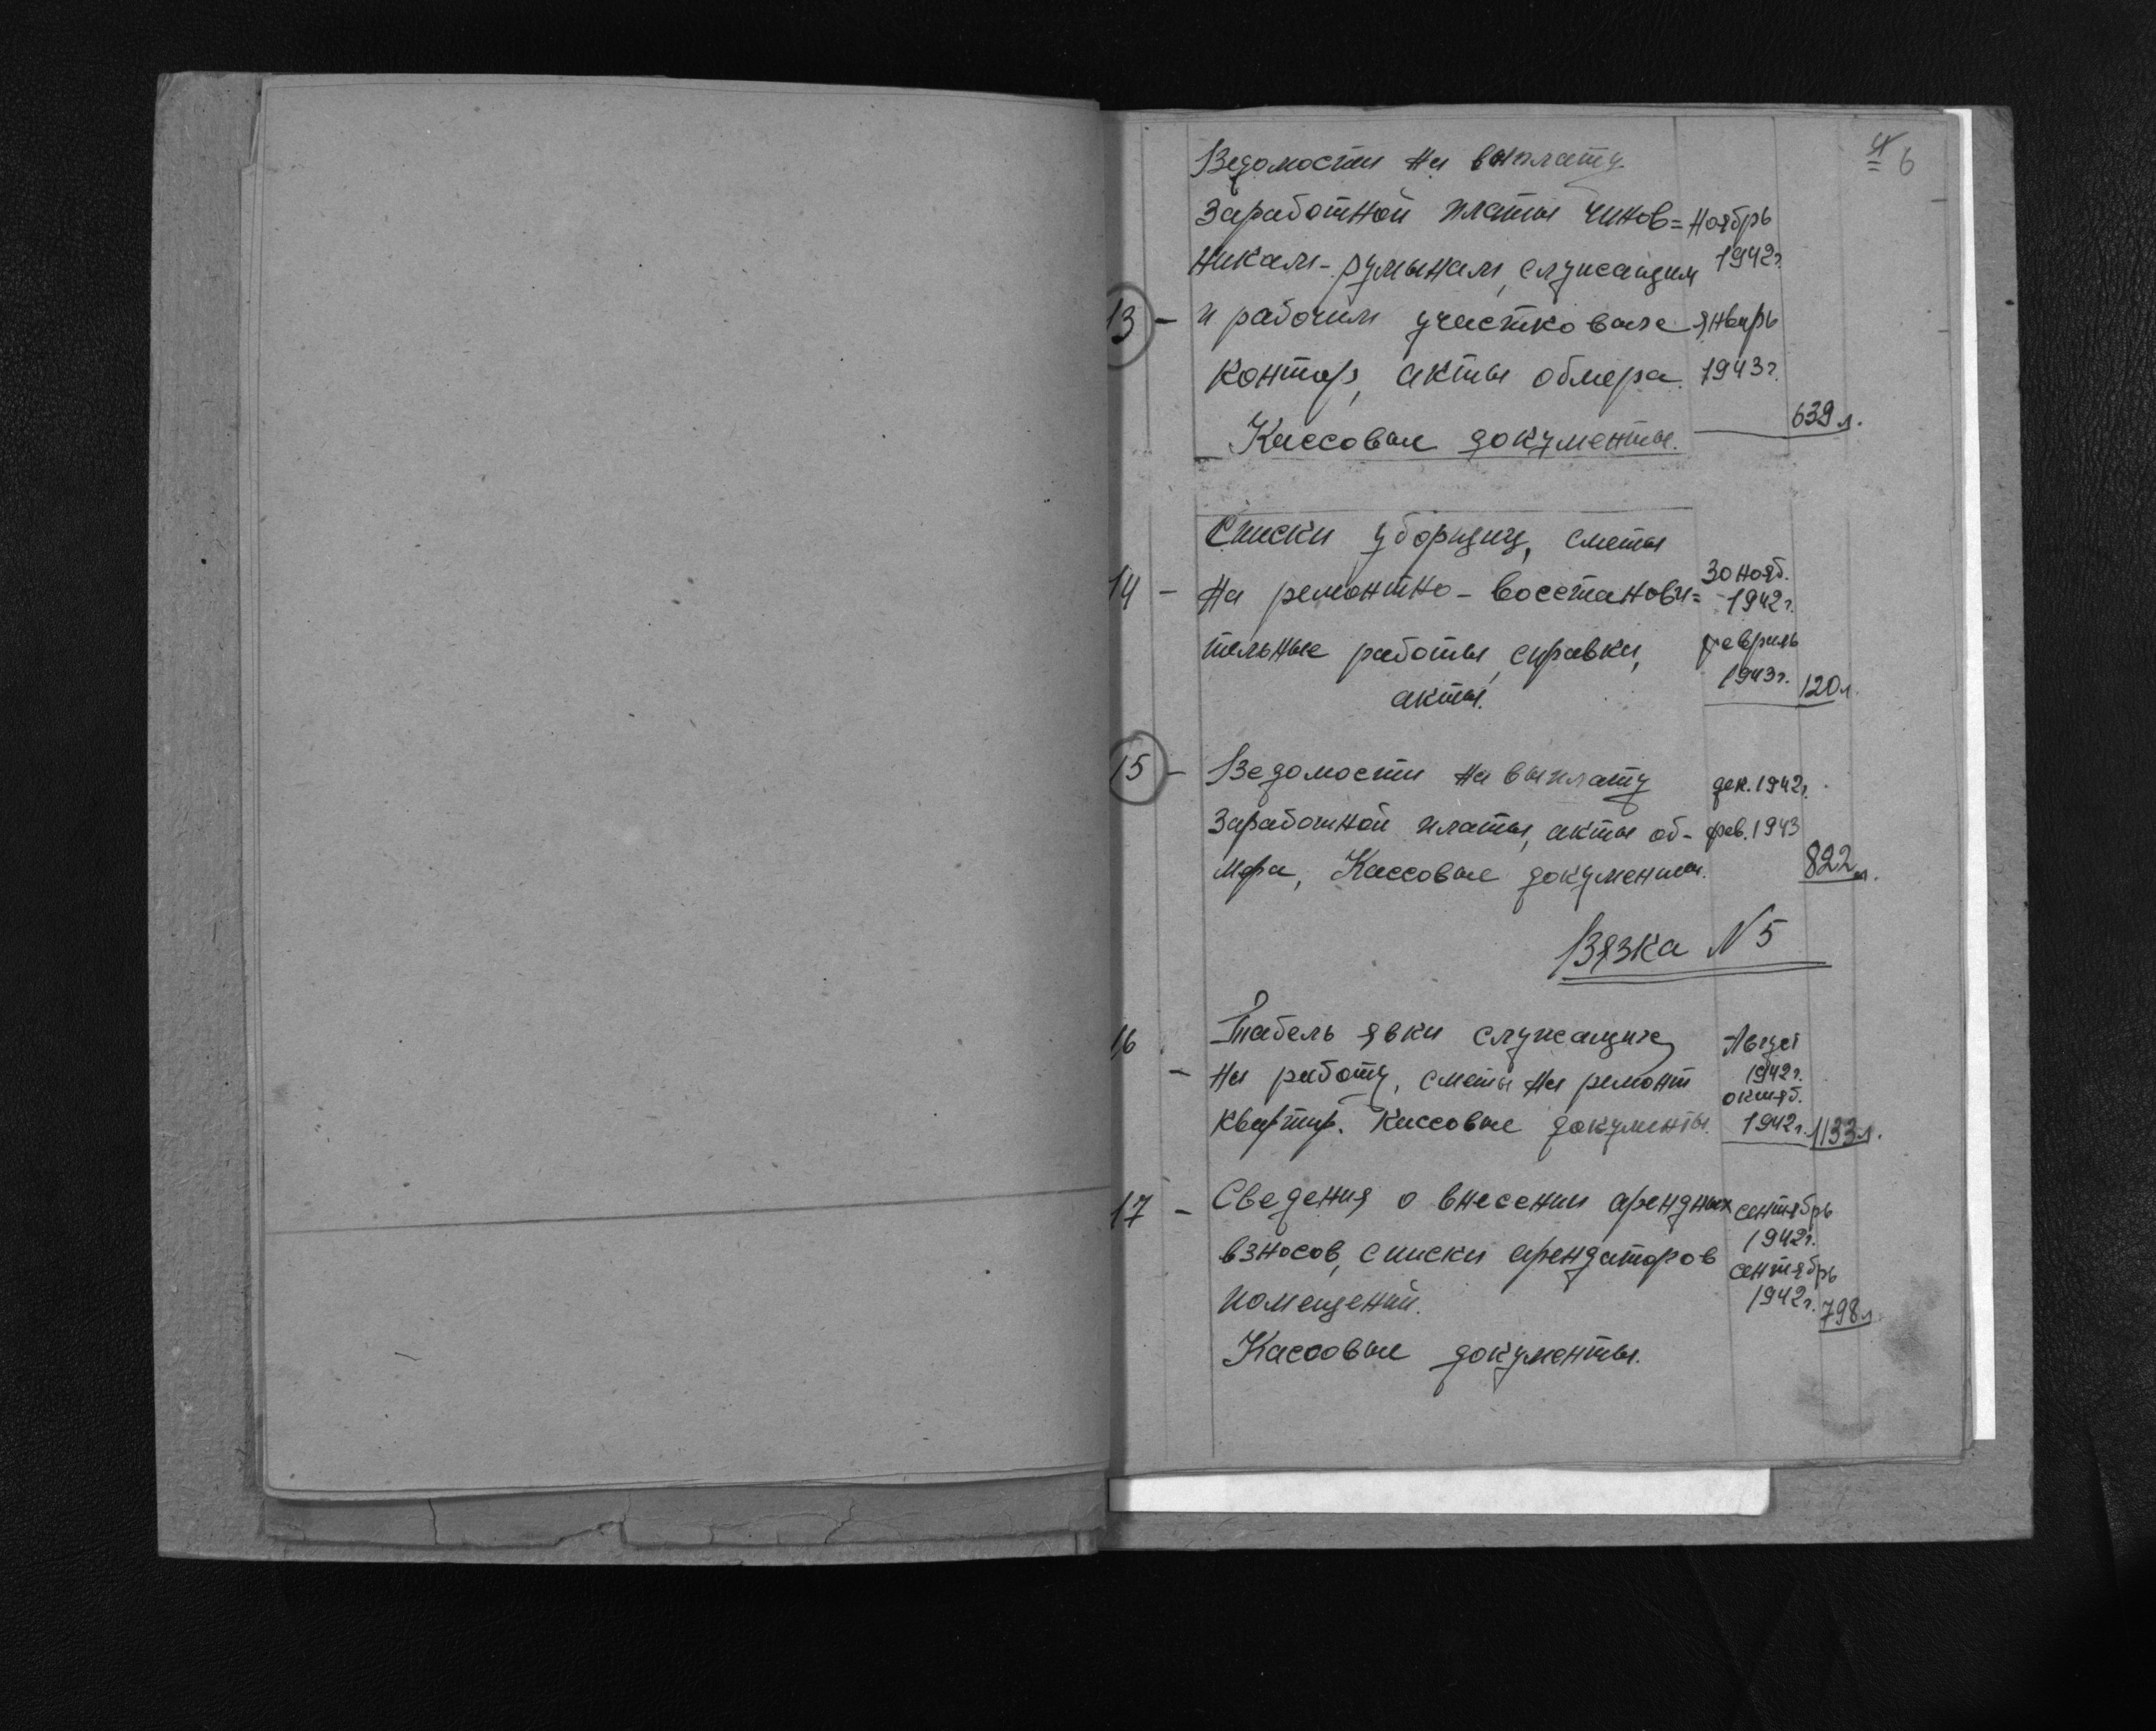 4 6
Ведомости на выплату
заработной платы чинов= ноябрь
никам-румынам, служащим 1942г.
13 - и рабочим участковых январь
контор, акты обмера. 1943г.
Кассовые документы. 639 л.
Списки уборщиц, сметы
14 - на ремонтно-восстанови= 30 нояб. 1942г.
тельные работы, справки, февраль
акты. 1943г. 120 л.
15 - Ведомости на выплату дек. 1942г.
заработной платы, акты об- фев. 1943
мера, Кассовые документы. 822 л.
Вязка N 5
16 Табель явки служащих Август
- на работу, сметы на ремонт 1942г. октяб.
квартир. Кассовые документы. 1942г. 1133 л.
17 - Сведения о внесении арендных сентябрь
взносов, списки арендаторов 1942г. сентябрь
помещений. 1942г. 798 л
Кассовые документы.